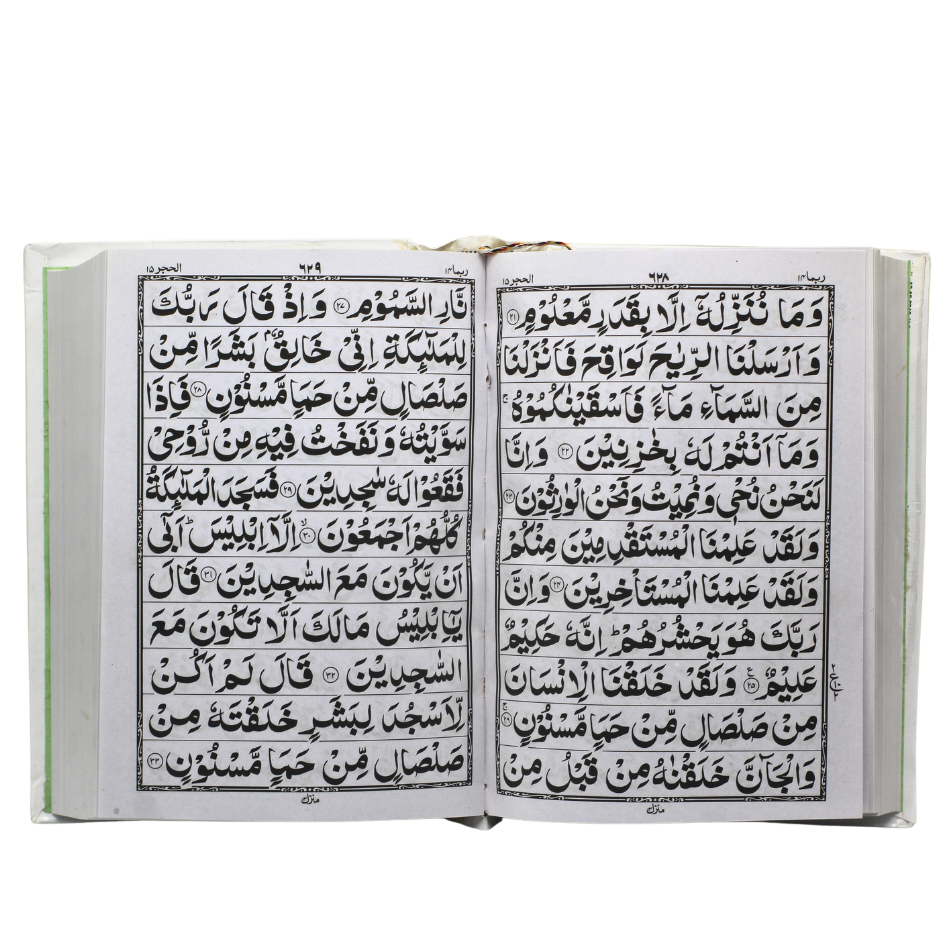 ربما ١٤
٦٢٨
الحجر ١٥
وَمَا نُنَزِّلُهٗۤ اِلَّا بِقَدَرٍ مَّعْلُوْمٍ ﴿٢١﴾
وَاَرْسَلْنَا الرِّيٰحَ لَوَاقِحَ فَاَنْزَلْنَا
مِنَ السَّمَآءِ مَآءً فَاَسْقَيْنٰكُمُوْهُ ۚ
وَمَاۤ اَنْتُمْ لَهٗ بِخٰزِنِيْنَ ﴿٢٢﴾ وَاِنَّا
لَنَحْنُ نُحْىٖ وَنُمِيْتُ وَنَحْنُ الْوٰرِثُوْنَ ﴿٢٣﴾
وَلَقَدْ عَلِمْنَا الْمُسْتَقْدِمِيْنَ مِنْكُمْ
وَلَقَدْ عَلِمْنَا الْمُسْتَاْخِرِيْنَ ﴿٢٤﴾ وَاِنَّ
رَبَّكَ هُوَ يَحْشُرُهُمْ ؕ اِنَّهٗ حَكِيْمٌ
عَلِيْمٌ ﴿٢٥﴾ ع وَلَقَدْ خَلَقْنَا الْاِنْسَانَ
مِنْ صَلْصَالٍ مِّنْ حَمَاٍ مَّسْنُوْنٍ ۚ ﴿٢٦﴾
وَالْجَآنَّ خَلَقْنٰهُ مِنْ قَبْلُ مِنْ
منزل
ربما ١٤
٦٢٩
الحجر ١٥
نَّارِ السَّمُوْمِ ﴿٢٧﴾ وَاِذْ قَالَ رَبُّكَ
لِلْمَلٰٓئِكَةِ اِنِّىْ خَالِقٌۢ بَشَرًا مِّنْ
صَلْصَالٍ مِّنْ حَمَاٍ مَّسْنُوْنٍ ﴿٢٨﴾ فَاِذَا
سَوَّيْتُهٗ وَنَفَخْتُ فِيْهِ مِنْ رُّوْحِىْ
فَقَعُوْا لَهٗ سٰجِدِيْنَ ﴿٢٩﴾ فَسَجَدَ الْمَلٰٓئِكَةُ
كُلُّهُمْ اَجْمَعُوْنَ ۙ ﴿٣٠﴾ اِلَّاۤ اِبْلِيْسَ ؕ اَبٰٓى
اَنْ يَّكُوْنَ مَعَ السّٰجِدِيْنَ ﴿٣١﴾ قَالَ
يٰۤاِبْلِيْسُ مَالَكَ اَلَّا تَكُوْنَ مَعَ
السّٰجِدِيْنَ ﴿٣٢﴾ قَالَ لَمْ اَكُنْ
لِّاَسْجُدَ لِبَشَرٍ خَلَقْتَهٗ مِنْ
صَلْصَالٍ مِّنْ حَمَاٍ مَّسْنُوْنٍ ﴿٣٣﴾
منزل